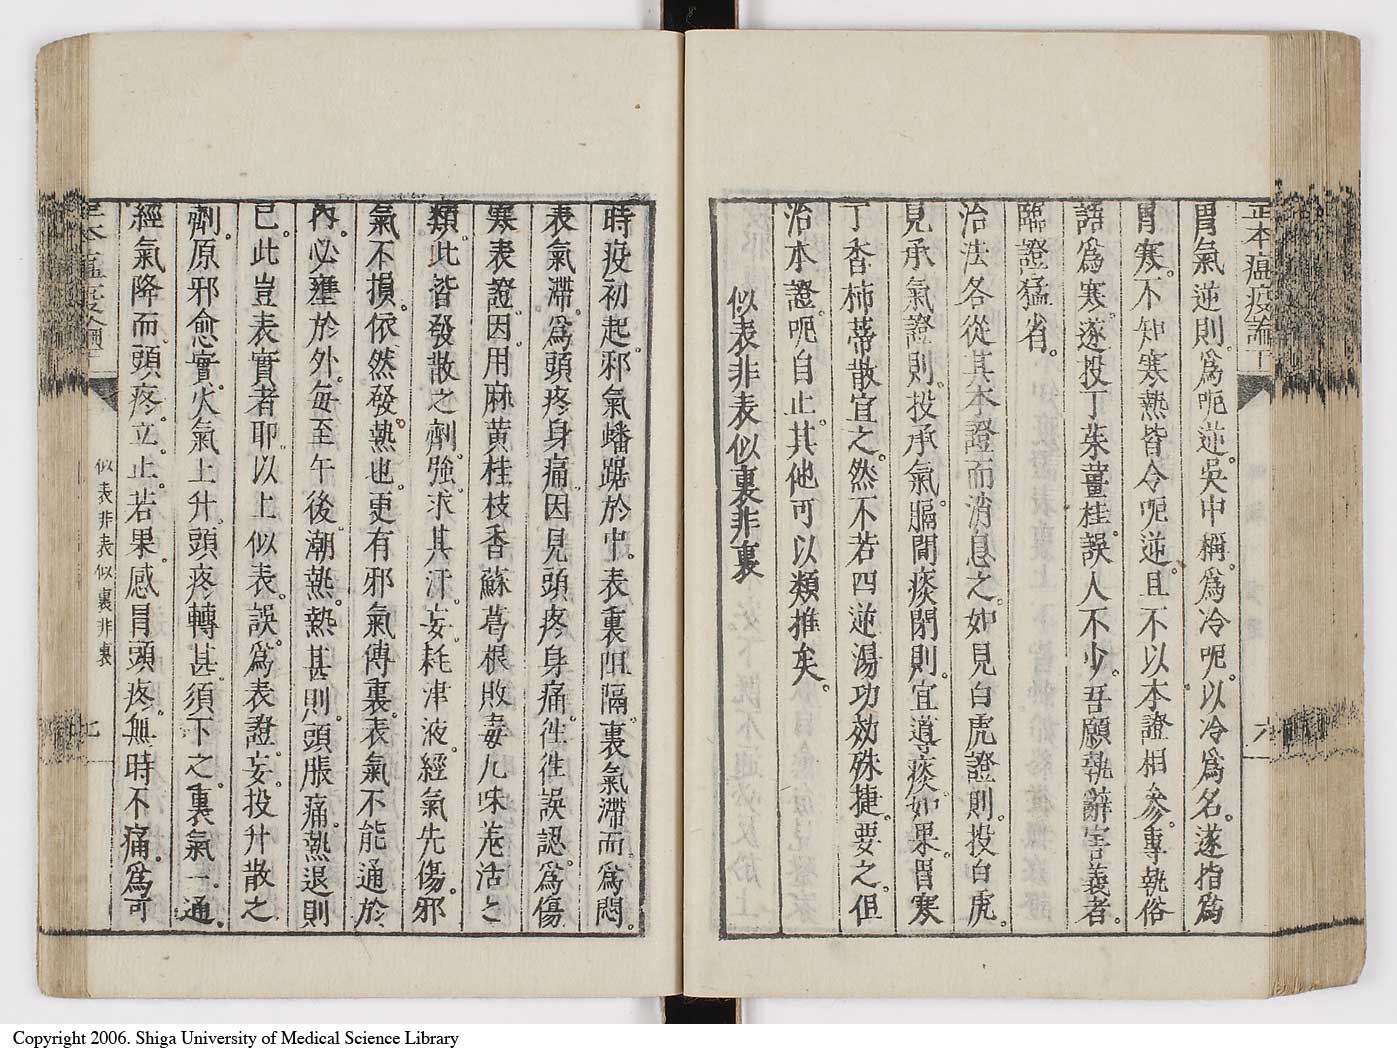 正本瘟疫論下
六
胃氣逆則爲呃逆。吳中稱爲冷呃。以冷爲名。遂指爲
胃寒。不知寒熱皆令呃逆。且不以本證相參。專執俗
語爲寒。遂投丁茱薑桂。誤人不少。吾願執辭害義者。
臨證猛省。
治法各從其本證而消息之。如見白虎證則投白虎。
見承氣證則投承氣。膈間痰閉則宜導痰。如果胃寒
丁香柿蒂散宜之。然不若四逆湯功効殊捷。要之。但
治本證。呃自止。其他可以類推矣。
似表非表似裏非裏
時疫初起。邪氣蟠踞於中。表裏阻隔。裏氣滯而爲悶。
表氣滯。爲頭疼身痛。因見頭疼身痛。徃徃誤認爲傷
寒表證。因用麻黃桂枝香蘇葛根敗毒九味羗活之
類。此皆發散之劑。強求其汗。妄耗津液。經氣先傷。邪
氣不損。依然發熱也。更有邪氣傳裏。表氣不能通於
內。必壅於外。每至午後潮熱。熱甚則頭脹痛。熱退則
已。此豈表實者耶。以上似表。誤爲表證。妄投升散之
劑。原邪愈實。火氣上升。頭疼轉甚。須下之。裏氣一通。
經氣降而頭疼。立止。若果感冒頭疼。無時不痛。爲可
似表非表似裏非裏
七
Copyright 2006. Shiga University of Medical Science Library